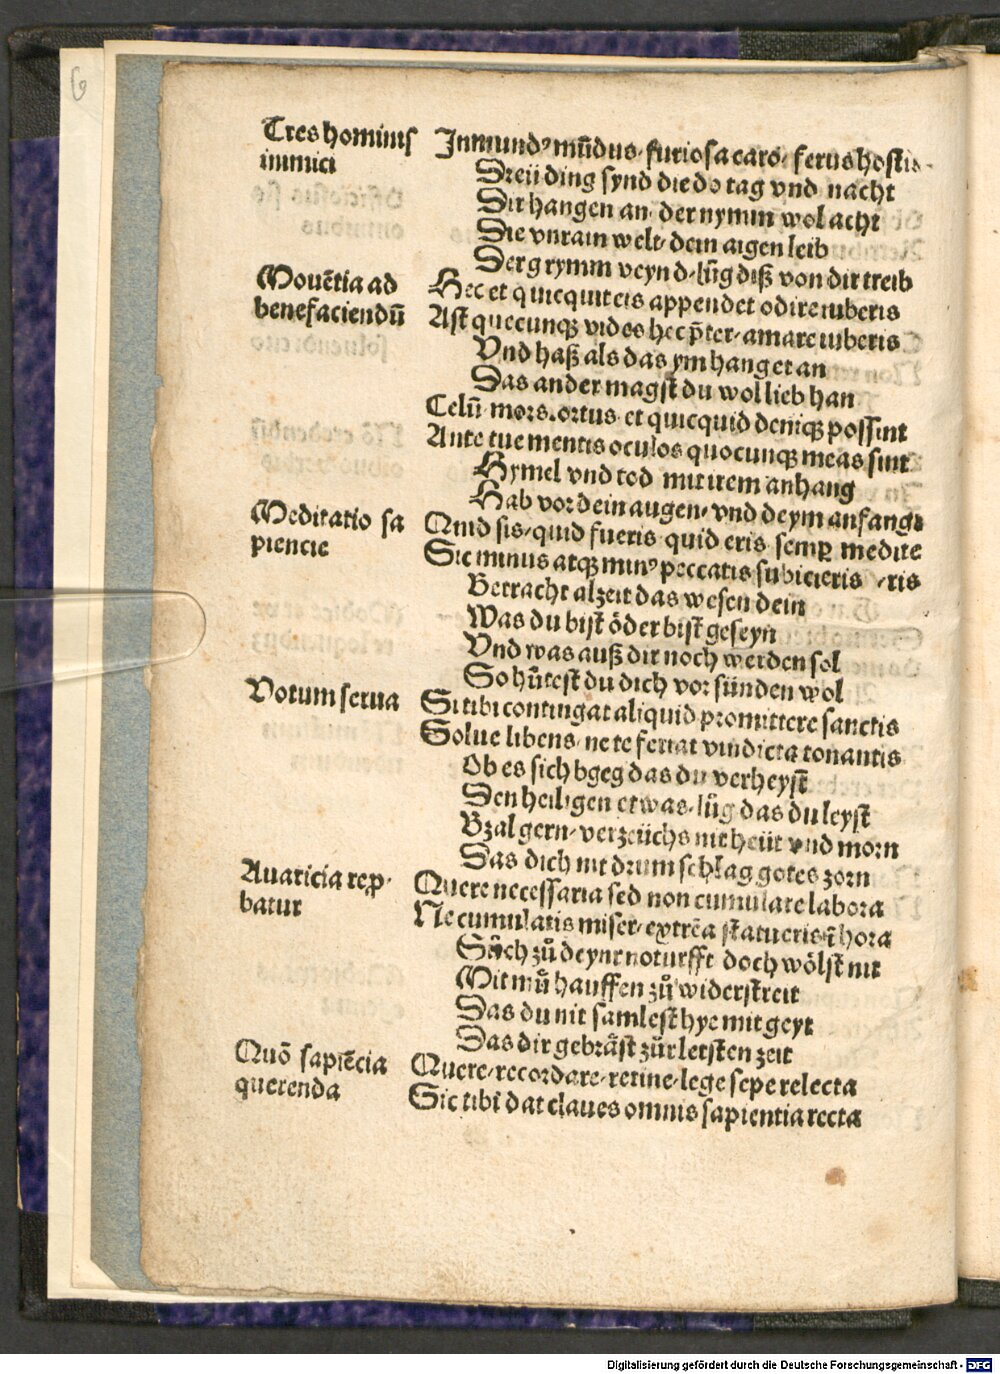 6
Tres hominis
inimici
Inmundꝰ mūdus· furiosa caro· ferus hostis·
Dreü ding synd die do tag vnd nacht
Dir hangen an· der nymm wol acht
Die vnrain welt· dein aigen leib
Der grymm veynd· lůg diß von dir treib
Mouētia ad
benefaciendū
Hec et quicquit eis appendet odire iuberis
Ast quecunqꝫ vides hec p̄ter· amare iuberis
Vnd haß als das ym hanget an
Das ander magst du wol lieb han
Celū· mors. ortus· et quicquid deniqꝫ possunt
Ante tue mentis oculos quocunqꝫ meas sunt
Hymel vnd tod mit irem anhang
Hab vor dein augen· vnd deym anfangk
Meditatio sa
piencie
Quid sis· quid fueris quid eris semꝑ medite
Sic minus atqꝫ minꝰ peccatis subicieris ·ris
Betracht alzeit das wesen dein
Was du bist öder bist geseyn
Vnd was auß dir noch werden sol
So hůtest du dich vor sünden wol
Votum serua
Si tibi contingat aliquid promittere sanctis
Solue libens· ne te feriat vindicta tonantis
Ob es sich bgeg das du verheyst
Den heiligen etwas· lůg das du leyst
Bzal gern· verzeüchs nit heüt vnd morn
Das dich nit drum schlag gotes zorn
Auaricia rep̱·
batur
Quere necessaria sed non cumulare labora
Ne cumulatis miser· extrēa statueris ī hora
Sůch zů deynr noturfft doch wölst nit
Mit mů hauffen zů widerstreit
Das du nit samlest hye mit geyt
Das dir gebräst zůr letsten zeit
Quō sapiēcia
querenda
Quere· recordare· retine· lege sepe relecta
Sic tibi dat claues omnis sapientia recta
Digitalisierung gefördert durch die Deutsche Forschungsgemeinschaft - DFG